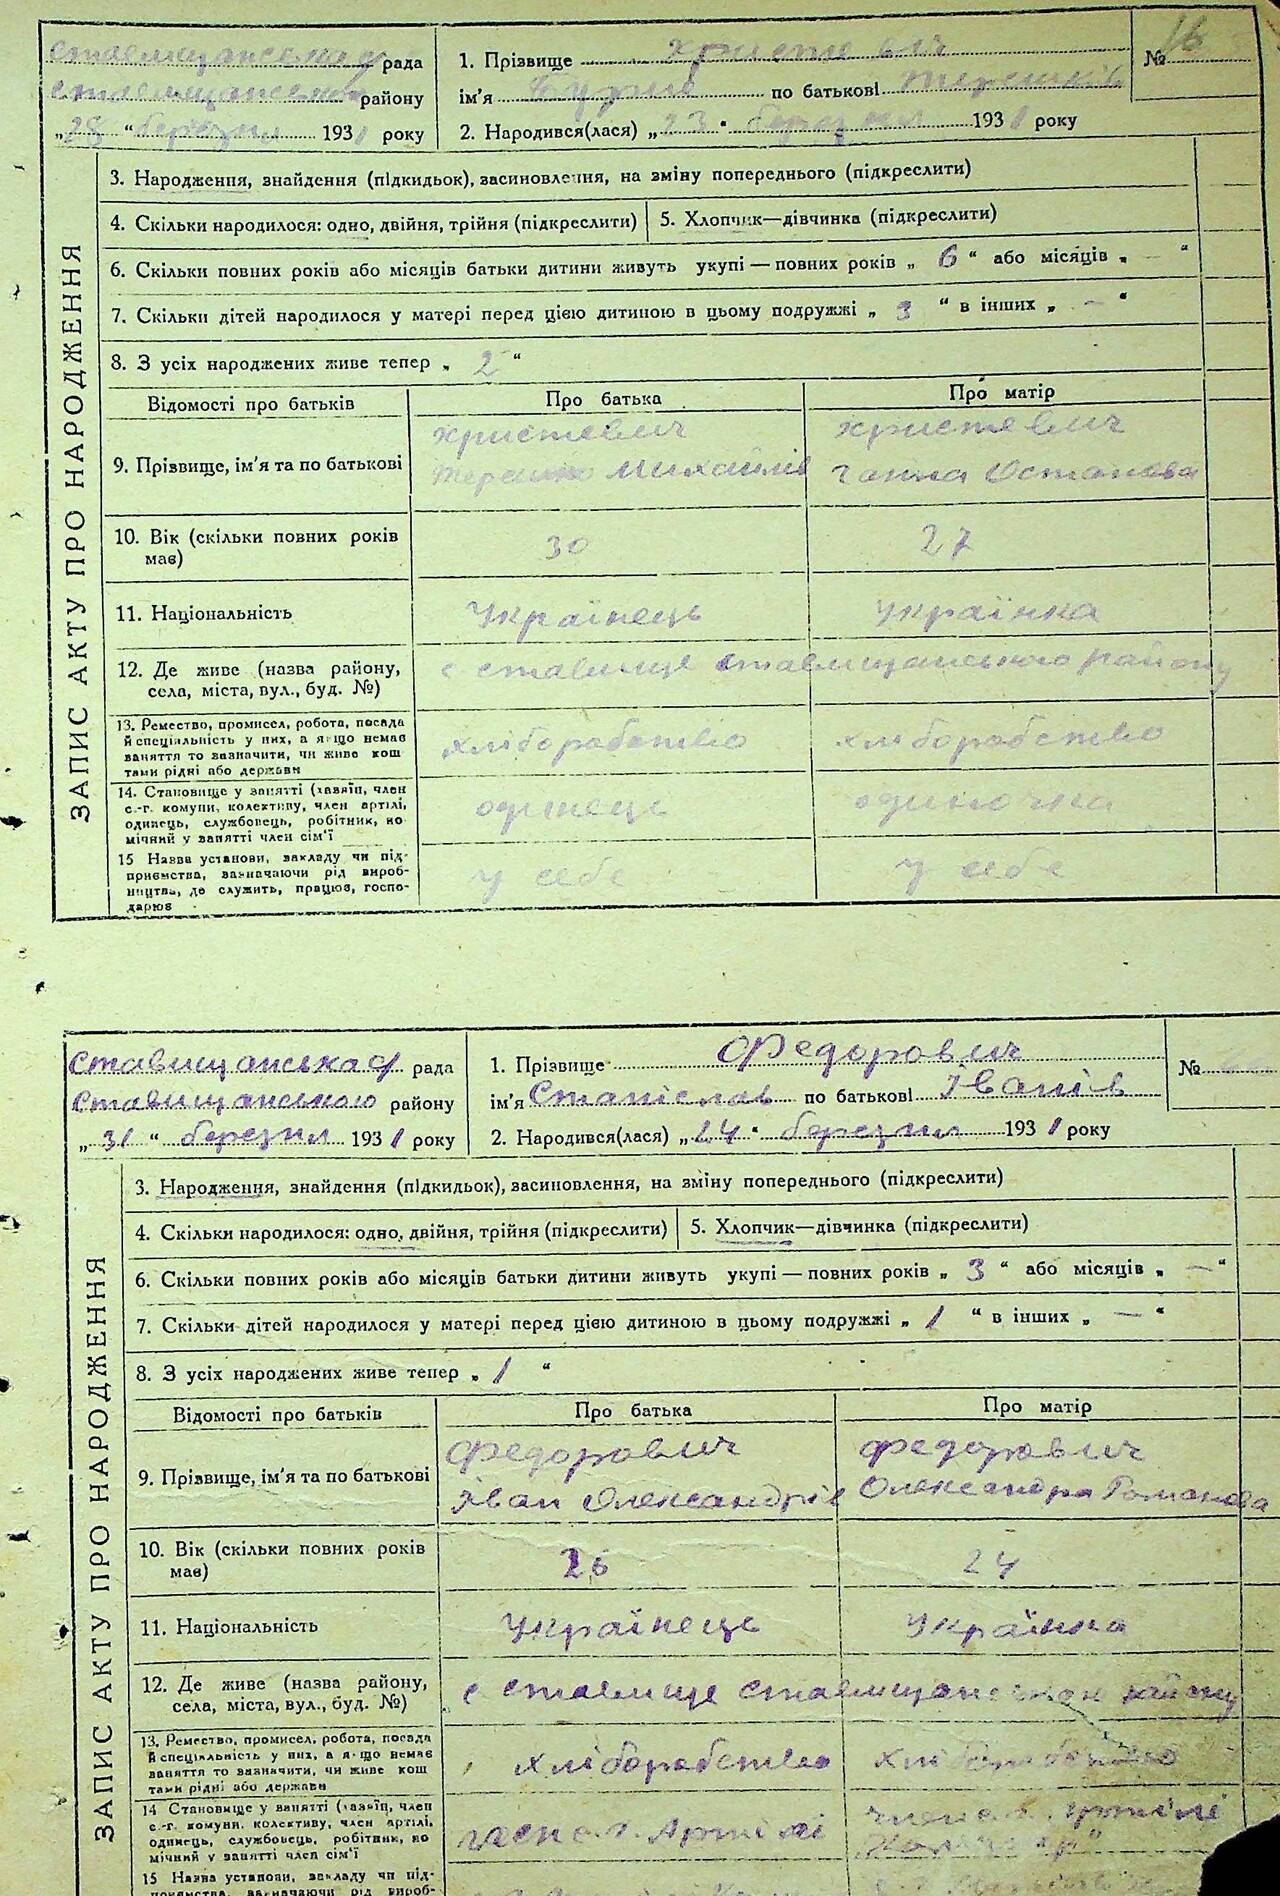 Ставищанська рада
Ставищанського району
„28“ березня 1931 року
1. Прізвище Христевич
ім'я по батькові Терешків
2. Народився(лася) „23“ березня 1931 року
№ 16
ЗАПИС АКТУ ПРО НАРОДЖЕННЯ
3. Народження, знайдення (підкидьок), засиновлення, на зміну попереднього (підкреслити)
4. Скільки народилося: одно, двійня, трійня (підкреслити)
5. Хлопчик—дівчинка (підкреслити)
6. Скільки повних років або місяців батьки дитини живуть укупі — повних років „ 6 “ або місяців „ — “
7. Скільки дітей народилося у матері перед цією дитиною в цьому подружжі „ 3 “ в інших „ — “
8. З усіх народжених живе тепер „ 2 “
Відомості про батьків
Про батька
Про матір
9. Прізвище, ім'я та по батькові
Христевич
Терешко Михайлів
Христевич
Ганна Остапова
10. Вік (скільки повних років
має)
30
27
11. Національність
Українець
Українка
12. Де живе (назва району,
села, міста, вул., буд. №)
с Ставище Ставищанського району
13. Ремество, промисел, робота, посада
й спеціяльність у них, а якщо немає
заняття то зазначити, чи живе кош
тами рідні або держави
хліборобство
хліборобство
14. Становище у занятті (хазяїн, член
с.-г. комуни, колективу, член артілі,
одинець, службовець, робітник, по
мічний у занятті член сім'ї
одинець
одиночка
15 Назва установи, закладу чи під-
приємства, зазначаючи рід вироб-
ництва, де служить, працює, госпо-
дарює
у себе
у себе
Ставищанська рада
Ставищанського району
„31“ березня 1931 року
1. Прізвище Федорович
ім'я Станіслав по батькові Іванів
2. Народився(лася) „24“ березня 1931 року
№
ЗАПИС АКТУ ПРО НАРОДЖЕННЯ
3. Народження, знайдення (підкидьок), засиновлення, на зміну попереднього (підкреслити)
4. Скільки народилося: одно, двійня, трійня (підкреслити)
5. Хлопчик—дівчинка (підкреслити)
6. Скільки повних років або місяців батьки дитини живуть укупі — повних років „ 3 “ або місяців „ — “
7. Скільки дітей народилося у матері перед цією дитиною в цьому подружжі „ 1 “ в інших „ — “
8. З усіх народжених живе тепер „ 1 “
Відомості про батьків
Про батька
Про матір
9. Прізвище, ім'я та по батькові
Федорович
Іван Олександрів
Федорович
Олександра Романова
10. Вік (скільки повних років
має)
26
24
11. Національність
Українець
Українка
12. Де живе (назва району,
села, міста, вул., буд. №)
с Ставище Ставищанського району
13. Ремество, промисел, робота, посада
й спеціяльність у них, а якщо немає
заняття то зазначити, чи живе кош
тами рідні або держави
хліборобство
хліборобство
14 Становище у занятті (хазяїн, член
с.-г. комуни, колективу, член артілі,
одинець, службовець, робітник, по
мічний у занятті член сім'ї
член с.г. Артілі
член с.г. артілі
15 Назва установи, закладу чи під-
приємства, зазначаючи рід вироб-